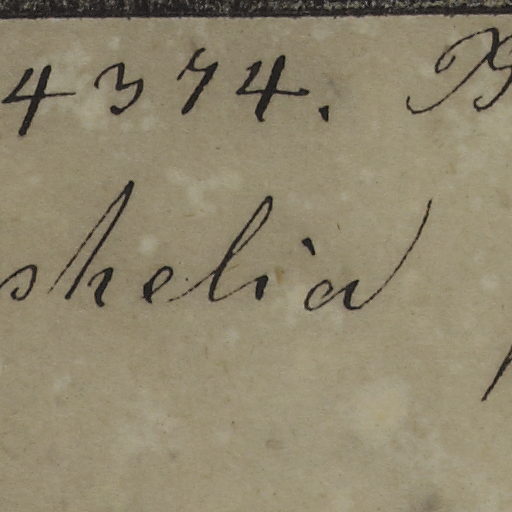 4374. B
shelia